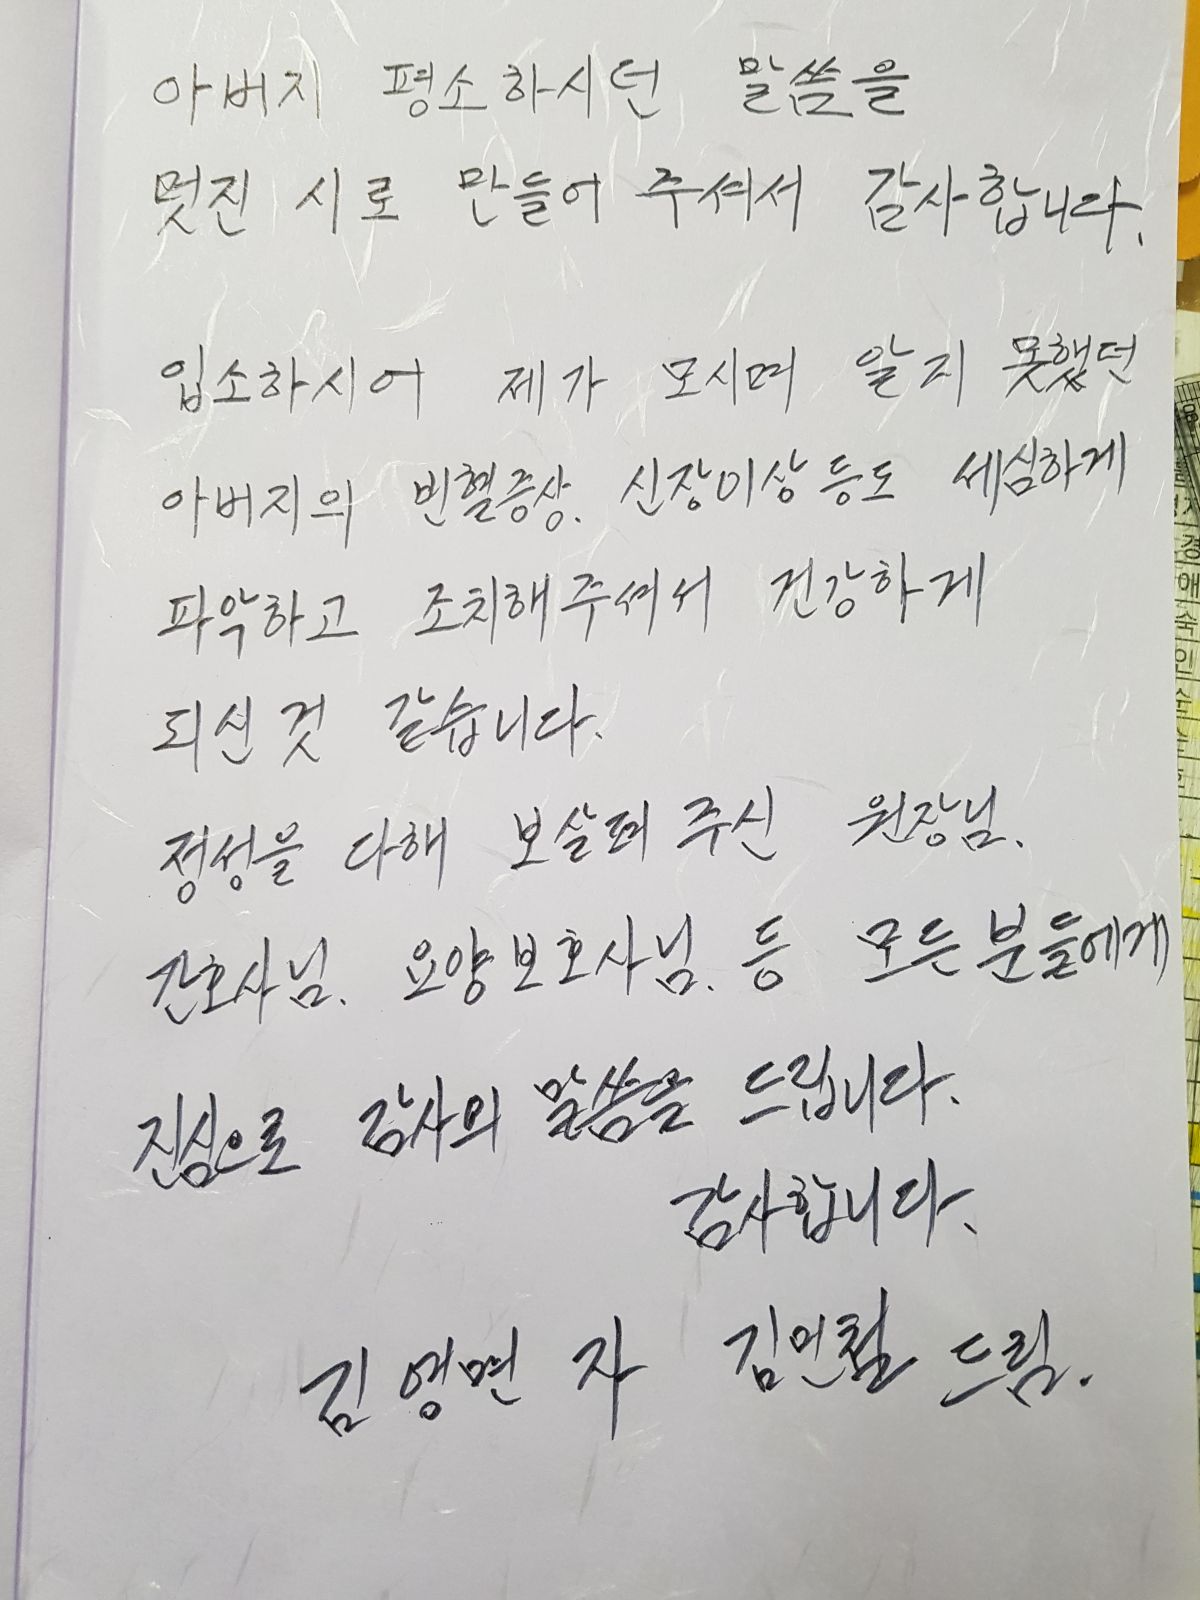 아버지 평소하시던 말씀을
멋진 시로 만들어 주셔서 감사합니다.
입소하시어 제가 모시며 알지 못했던
아버지의 빈혈증상. 신장이상 등도 세심하게
파악하고 조치해주셔서 건강하게
되신것 같습니다.
정성을 다해 보살펴 주신 원장님.
간호사님. 요양보호사님. 등 모든분들에게
진심으로 감사의 말씀을 드립니다.
감사합니다.
김영면 자 김민철 드림.
경
애
숙
인